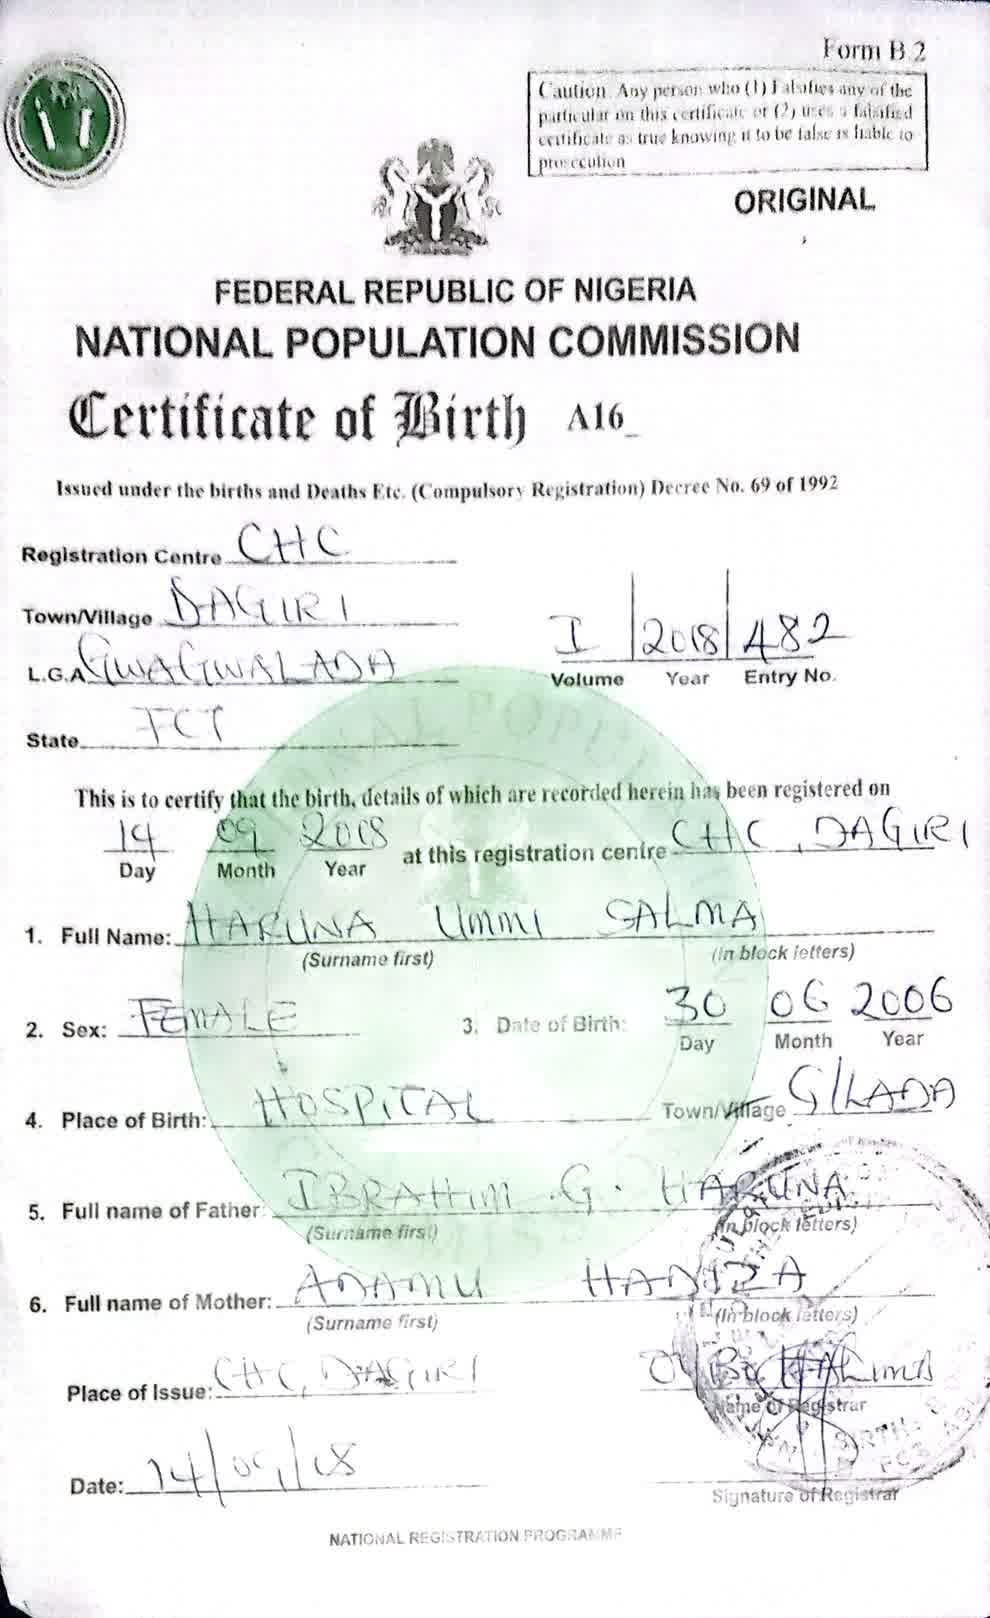 Form B.2
Caution: Any person who (1) Falsifies any of the
particular on this certificate or (2) uses a falsified
certificate as true knowing it to be false is liable to
prosecution
ORIGINAL
FEDERAL REPUBLIC OF NIGERIA
NATIONAL POPULATION COMMISSION
Certificate of Birth A16_
Issued under the births and Deaths Etc. (Compulsory Registration) Decree No. 69 of 1992
Registration Centre CHC
Town/Village DAGIRI
L.G.A GWAGWALADA
State FCT
I 2018 482
Volume Year Entry No.
This is to certify that the birth, details of which are recorded herein has been registered on
14 09 2018 at this registration centre CHC, DAGIRI
Day Month Year
1. Full Name: HARUNA UMMI SALMA
(Surname first) (in block letters)
2. Sex: FEMALE 3. Date of Birth: 30 06 2006
Day Month Year
4. Place of Birth: HOSPITAL Town/Village G/LADA
5. Full name of Father: IBRAHIM .G. HARUNA
(Surname first) (In block letters)
6. Full name of Mother: ADAMU HADIZA
(Surname first) (In block letters)
Place of Issue: CHC, DAGIRI
Name of Registrar
Date: 14/09/18
Signature of Registrar
NATIONAL REGISTRATION PROGRAMME